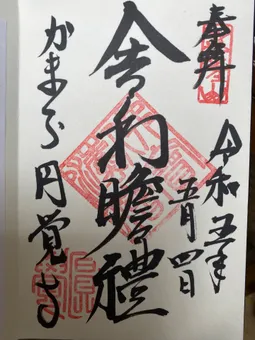 奉拝
令和五年
五月四日
舎利瞻禮
かまくら円覚寺